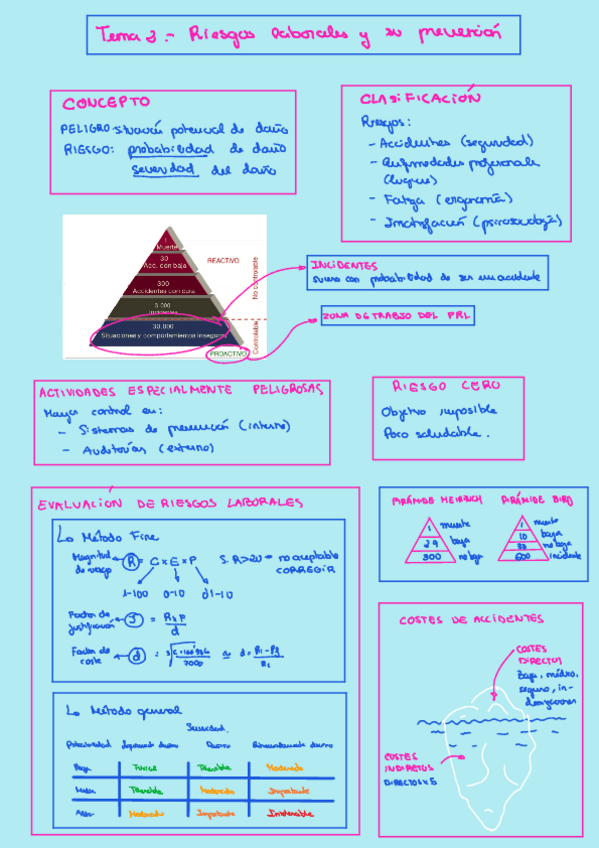 Tema 2.- Riesgos laborales y su prevención
CONCEPTO
PELIGRO: situación potencial de daño
RIESGO: probabilidad de daño
severidad del daño
CLASIFICACIÓN
Riesgos:
- Accidentes (seguridad)
- Enfermedades profesionales
(higiene)
- Fatiga (ergonomía)
- Insatisfacción (psicosociología)
1
Muerte
30
Acc. con baja
300
Accidentes con cura
3.000
Incidentes
30.000
Situaciones y comportamientos inseguros
REACTIVO
PROACTIVO
No controlable
Controlable
INCIDENTES
suceso con probabilidad de ser un accidente
ZONA DE TRABAJO DEL PRL
ACTIVIDADES ESPECIALMENTE PELIGROSAS
Mayor control en:
- Sistemas de prevención (interno)
- Auditorías (externo)
RIESGO CERO
Objetivo imposible
Poco saludable.
EVALUACIÓN DE RIESGOS LABORALES
Método Fine
Magnitud
de riesgo
R = C x E x P
Si R>20 = no aceptable
CORREGIR
1-100 0-10 0'1-10
Factor de
justificación
J = RxP
d
Factor de
coste
d =
7000
≈ d =
Método general
Severidad
Probabilidad
Ligeramente dañino
Dañino
Extremadamente dañino
Baja Trivial Tolerable Moderado
Media Tolerable Moderado Importante
Alta Moderado Importante Intolerable
PIRÁMIDE HEINRICH
1 muerte
29 baja
300 no baja
PIRÁMIDE BIRD
1 muerte
10 baja
30 no baja
600 incidente
COSTES DE ACCIDENTES
COSTES
DIRECTOS
Baja, médico,
seguro, in-
demnizaciones
COSTES
INDIRECTOS
DIRECTOS x 5